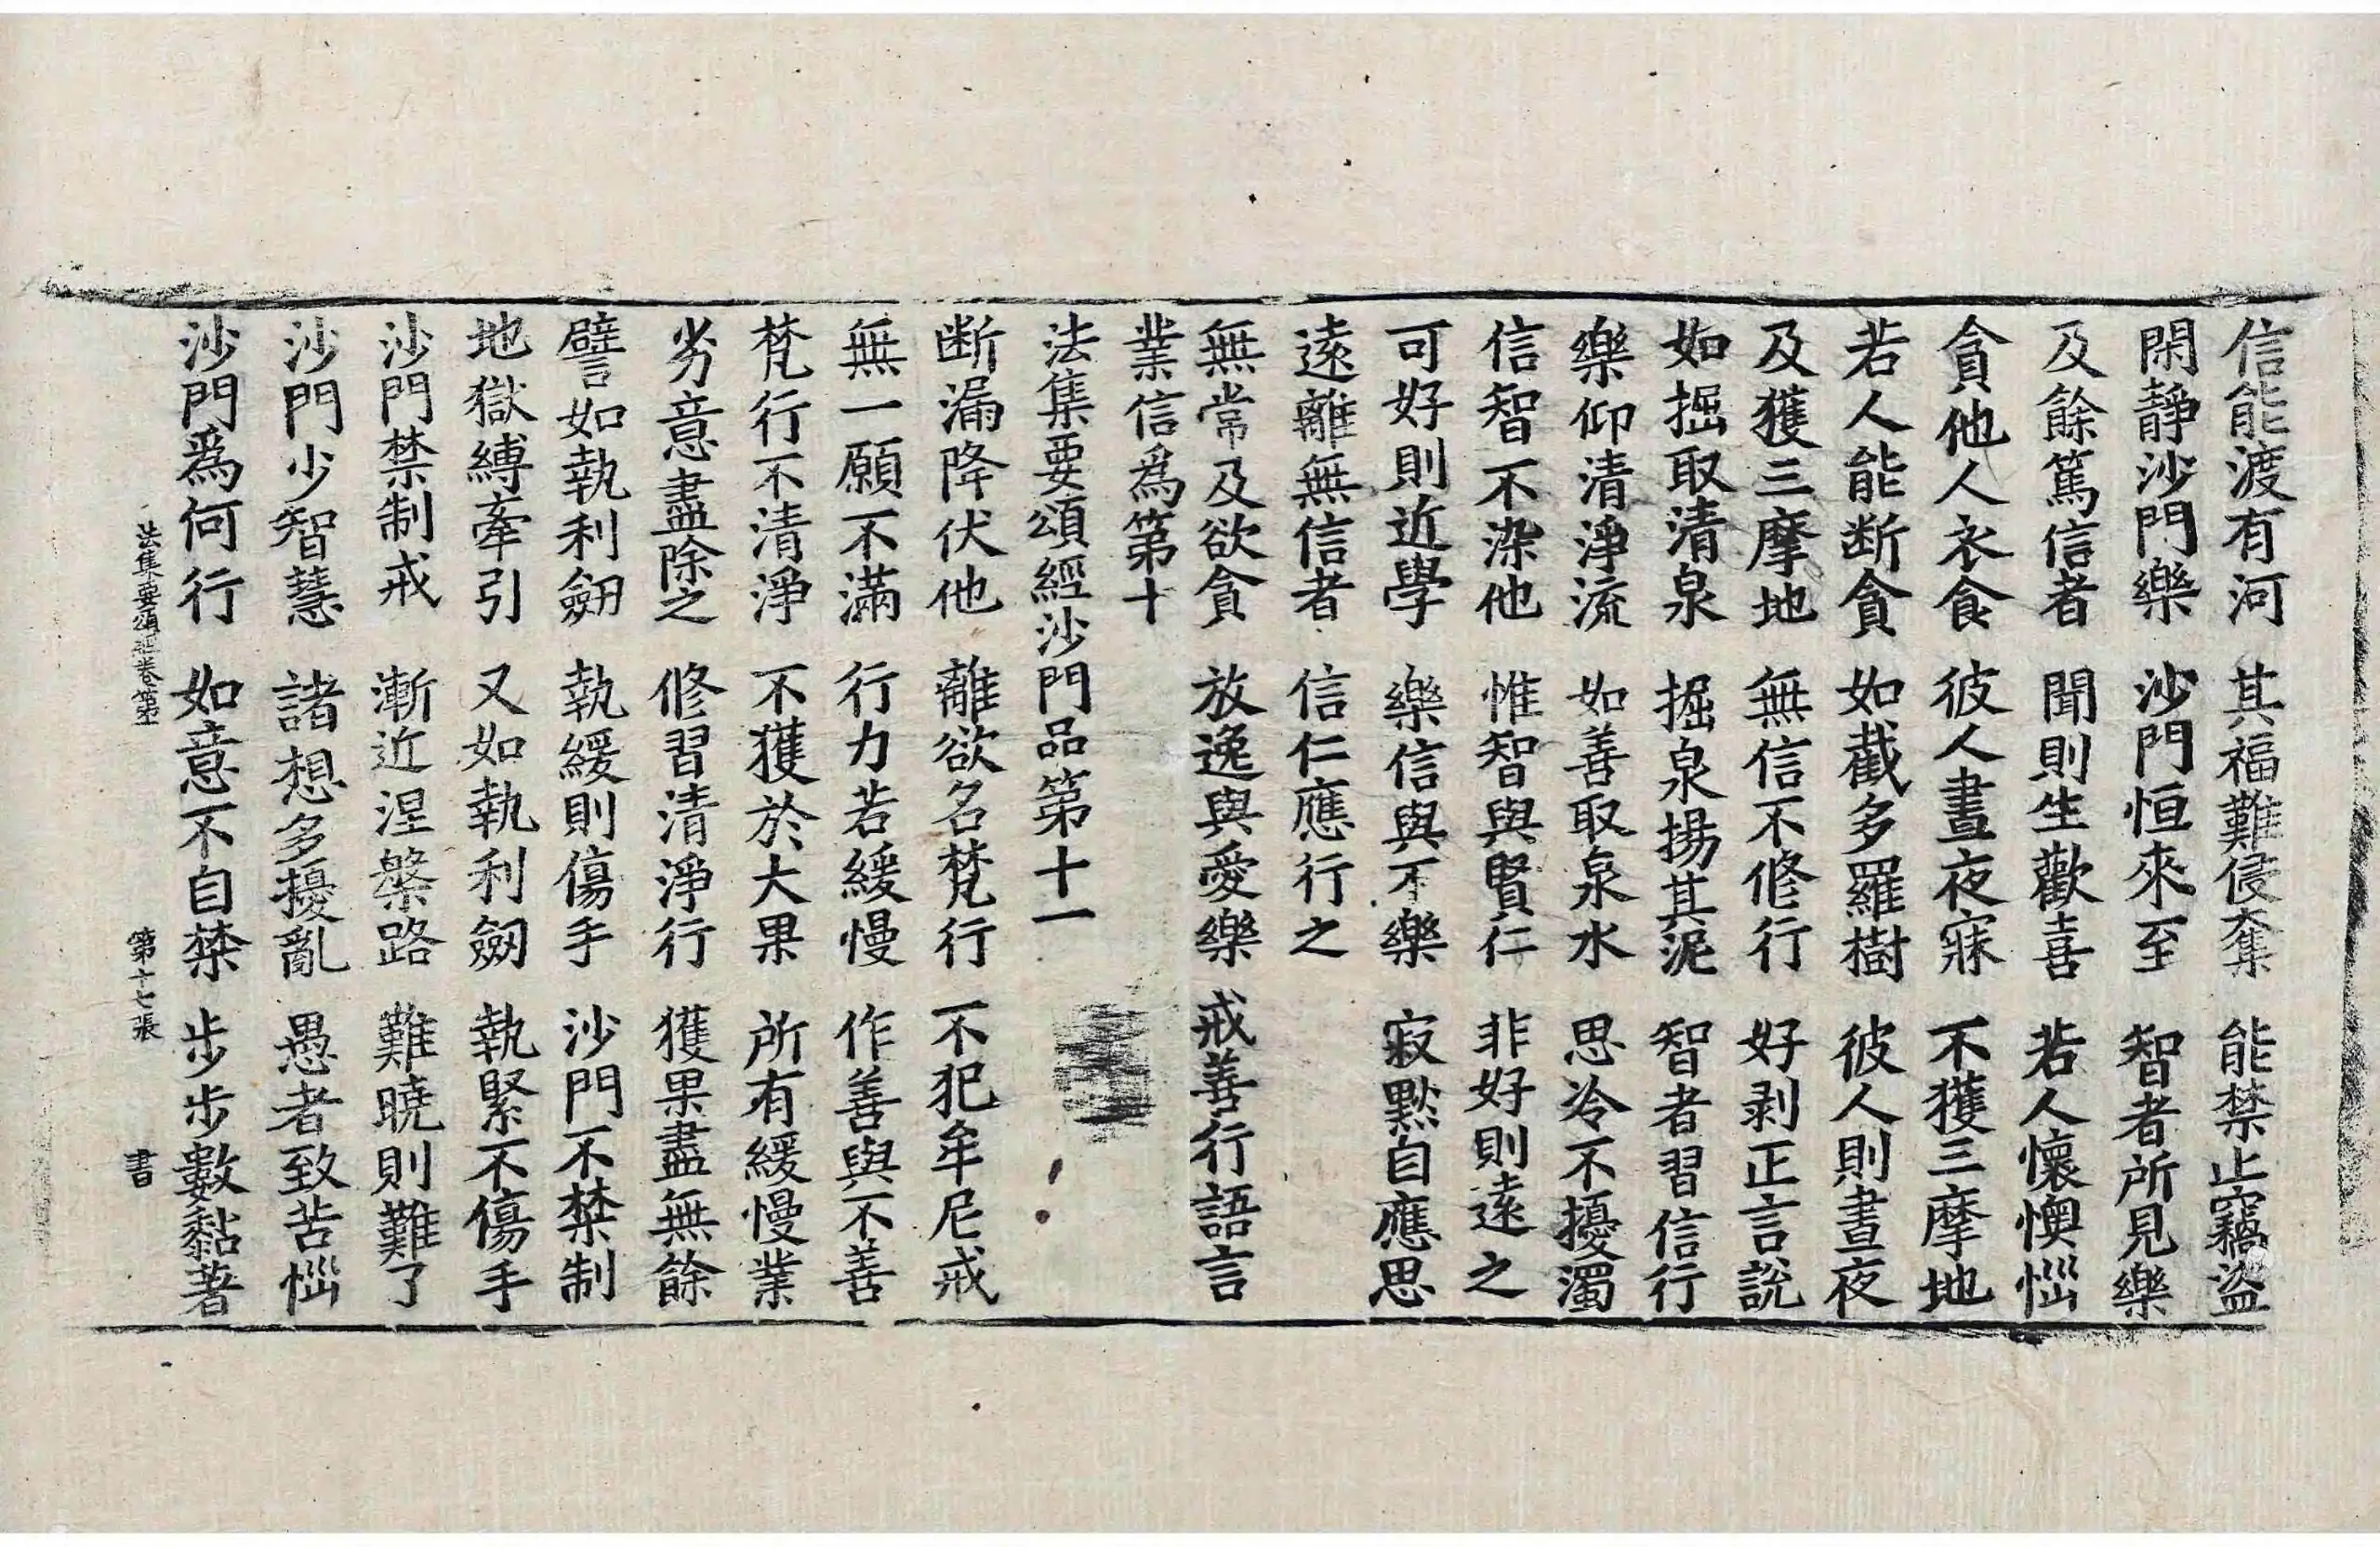 信能渡有河　其福難侵奪　能禁止竊盜
閑靜沙門樂　沙門恒來至　智者所見樂
及餘篤信者　聞則生歡喜　若人懷懊惱
貪他人衣食　彼人晝夜寐　不獲三摩地
若人能断貪　如截多羅樹　彼人則晝夜
及獲三摩地　無信不修行　好剥正言說
如掘取清泉　掘泉揚其泥　智者習信行
樂仰清淨流　如善取泉水　思冷不擾濁
信智不染他　惟智與賢仁　非好則逺之
可好則近學　樂信與不樂　寂黙自應思
逺離無信者　信仁應行之
無常及欲貪　放逸與愛樂　戒善行語言
業信爲第十
法集要頌經沙門品第十一
断漏降伏他　離欲名梵行　不犯牟尼戒
無一願不滿　行力若緩慢　作善與不善
梵行不清淨　不獲於大果　所有緩慢業
劣意盡除之　修習清淨行　獲果盡無餘
譬如執利劒　執緩則傷手　沙門不禁制
地獄縛牽引　又如執利劒　執緊不傷手
沙門禁制戒　漸近涅槃路　難曉則難了
沙門少智慧　諸想多擾亂　愚者致苦惱
沙門爲何行　如意不自禁　步步數黏著
法集要頌經卷第　第十七張　書